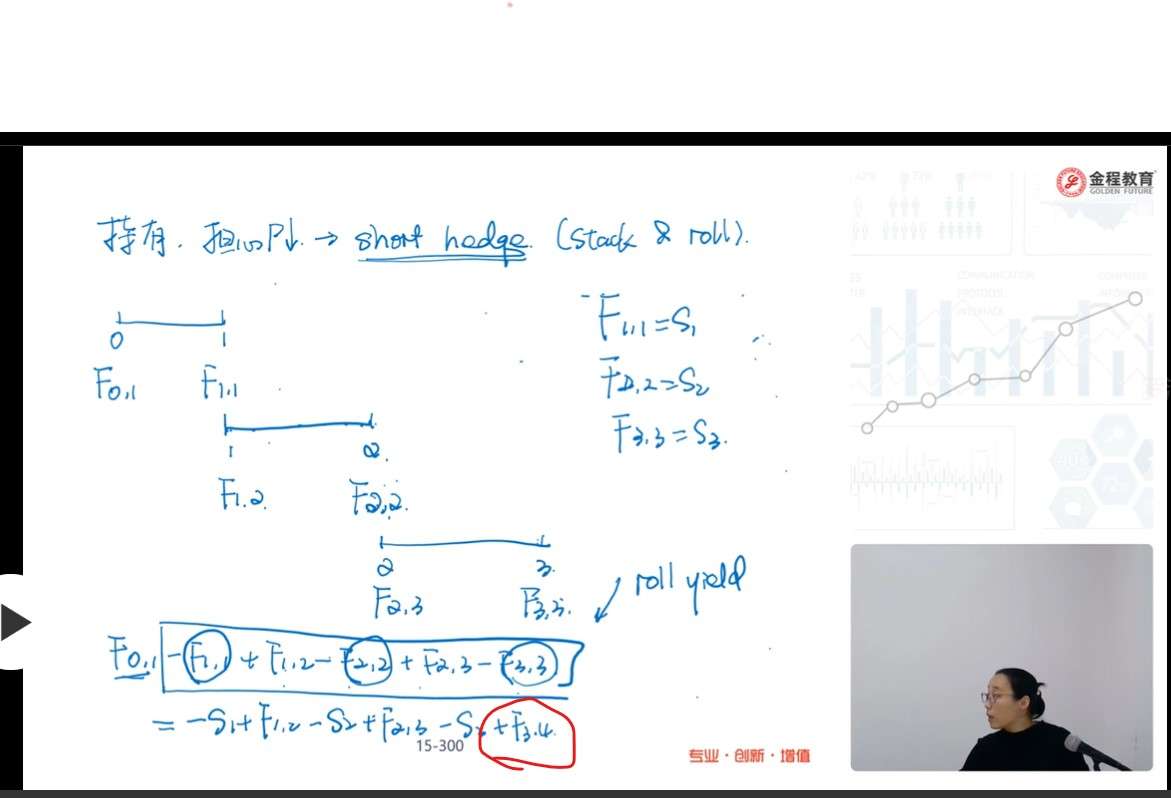 金程教育
GOLDEN FUTURE
持有. 担心P↓. → short hedge. (stack & roll).
0 1
F0,1 F1,1
1 2.
F1,2 F2,2.
2 3.
F2,3 F3,3.
F1,1=S1
F2,2=S2
F3,3=S3.
roll yield
F0,1 -F1,1 + F1,2 - F2,2 + F2,3 - F3,3
= -S1+F1,2 -S2+F2,3 -S3 +F3,4
15-300
专业·创新·增值